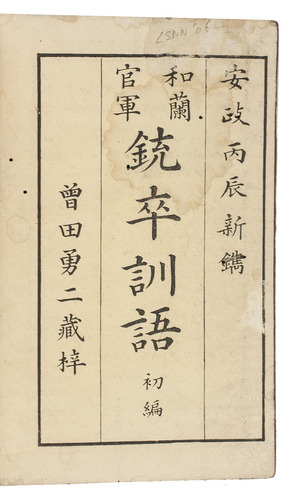 安政丙辰新鐫
和蘭
官軍
銃卒訓語
初編
曾田勇二藏梓